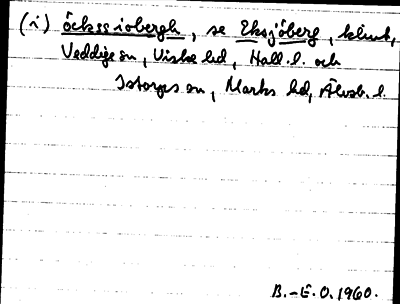 (i) öckssiobergh, se Eksjöberg, klint,
Veddige sn, Viske hd, Hall. l. och
Istorps sn, Marks hd, Älvsb. l.
B.-E. O. 1960.